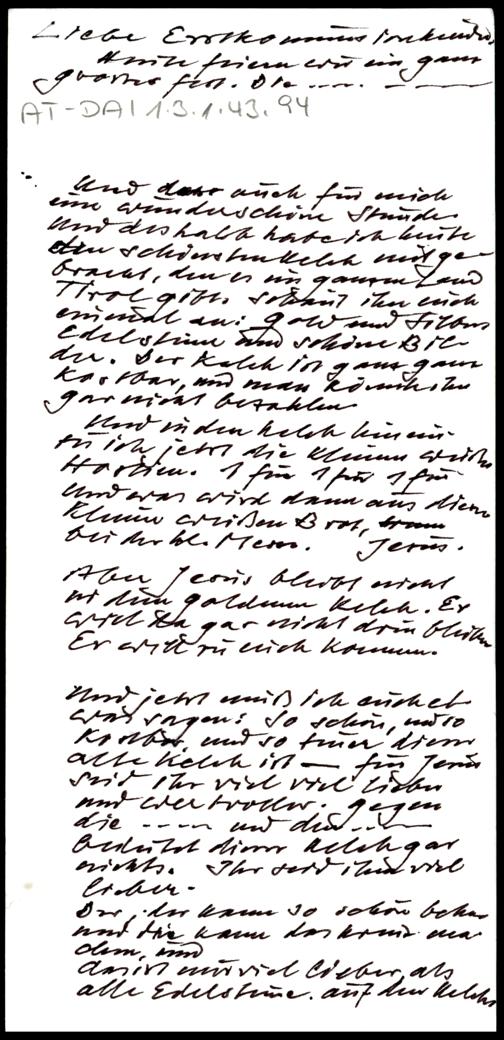 Liebe Erstkommunionkinder
Heute feiern wir ein ganz
grosses Fest. Die ..... .. ——
AT-DAI 1.3.1.43.94
Und auch für mich
eine wunderschöne Stunde.
Und deshalb habe ich heute
den schönsten Kelch mitge-
bracht, den es im ganzen Land
Tirol gibt. Schaut ihn euch
einmal an: Gold und Silber
Edelsteine und schöne Bil-
der. Der Kelch ist ganz ganz
kostbar, und man könnte ihn
gar nicht bezahlen
Und in den Kelch hinein
tu ich jetzt die kleinen weißen
Hostien. 1 für 1 für 1 für
Und was wird dann aus diesem
kleinen weißen Brot,
bei der hl. Messe. Jesus.
Aber Jesus bleibt nicht
in dem goldenen Kelch. Er
will da gar nicht drin bleiben
Er will zu euch kommen.
Und jetzt muß ich euch et-
was sagen: So schön, und so
kostbar, und so teuer dieser
alte Kelch ist — für Jesus
seid Ihr viel viel lieber
und wertvoller. Gegen
die ---- und den ----
bedeutet dieser Kelch gar
nichts. Ihr seid ihm viel
lieber.
Der, der kann so schön beten
und die kann das Kreuz ma-
chen, und
das ist mir viel lieber, als
alle Edelsteine auf dem Kelch